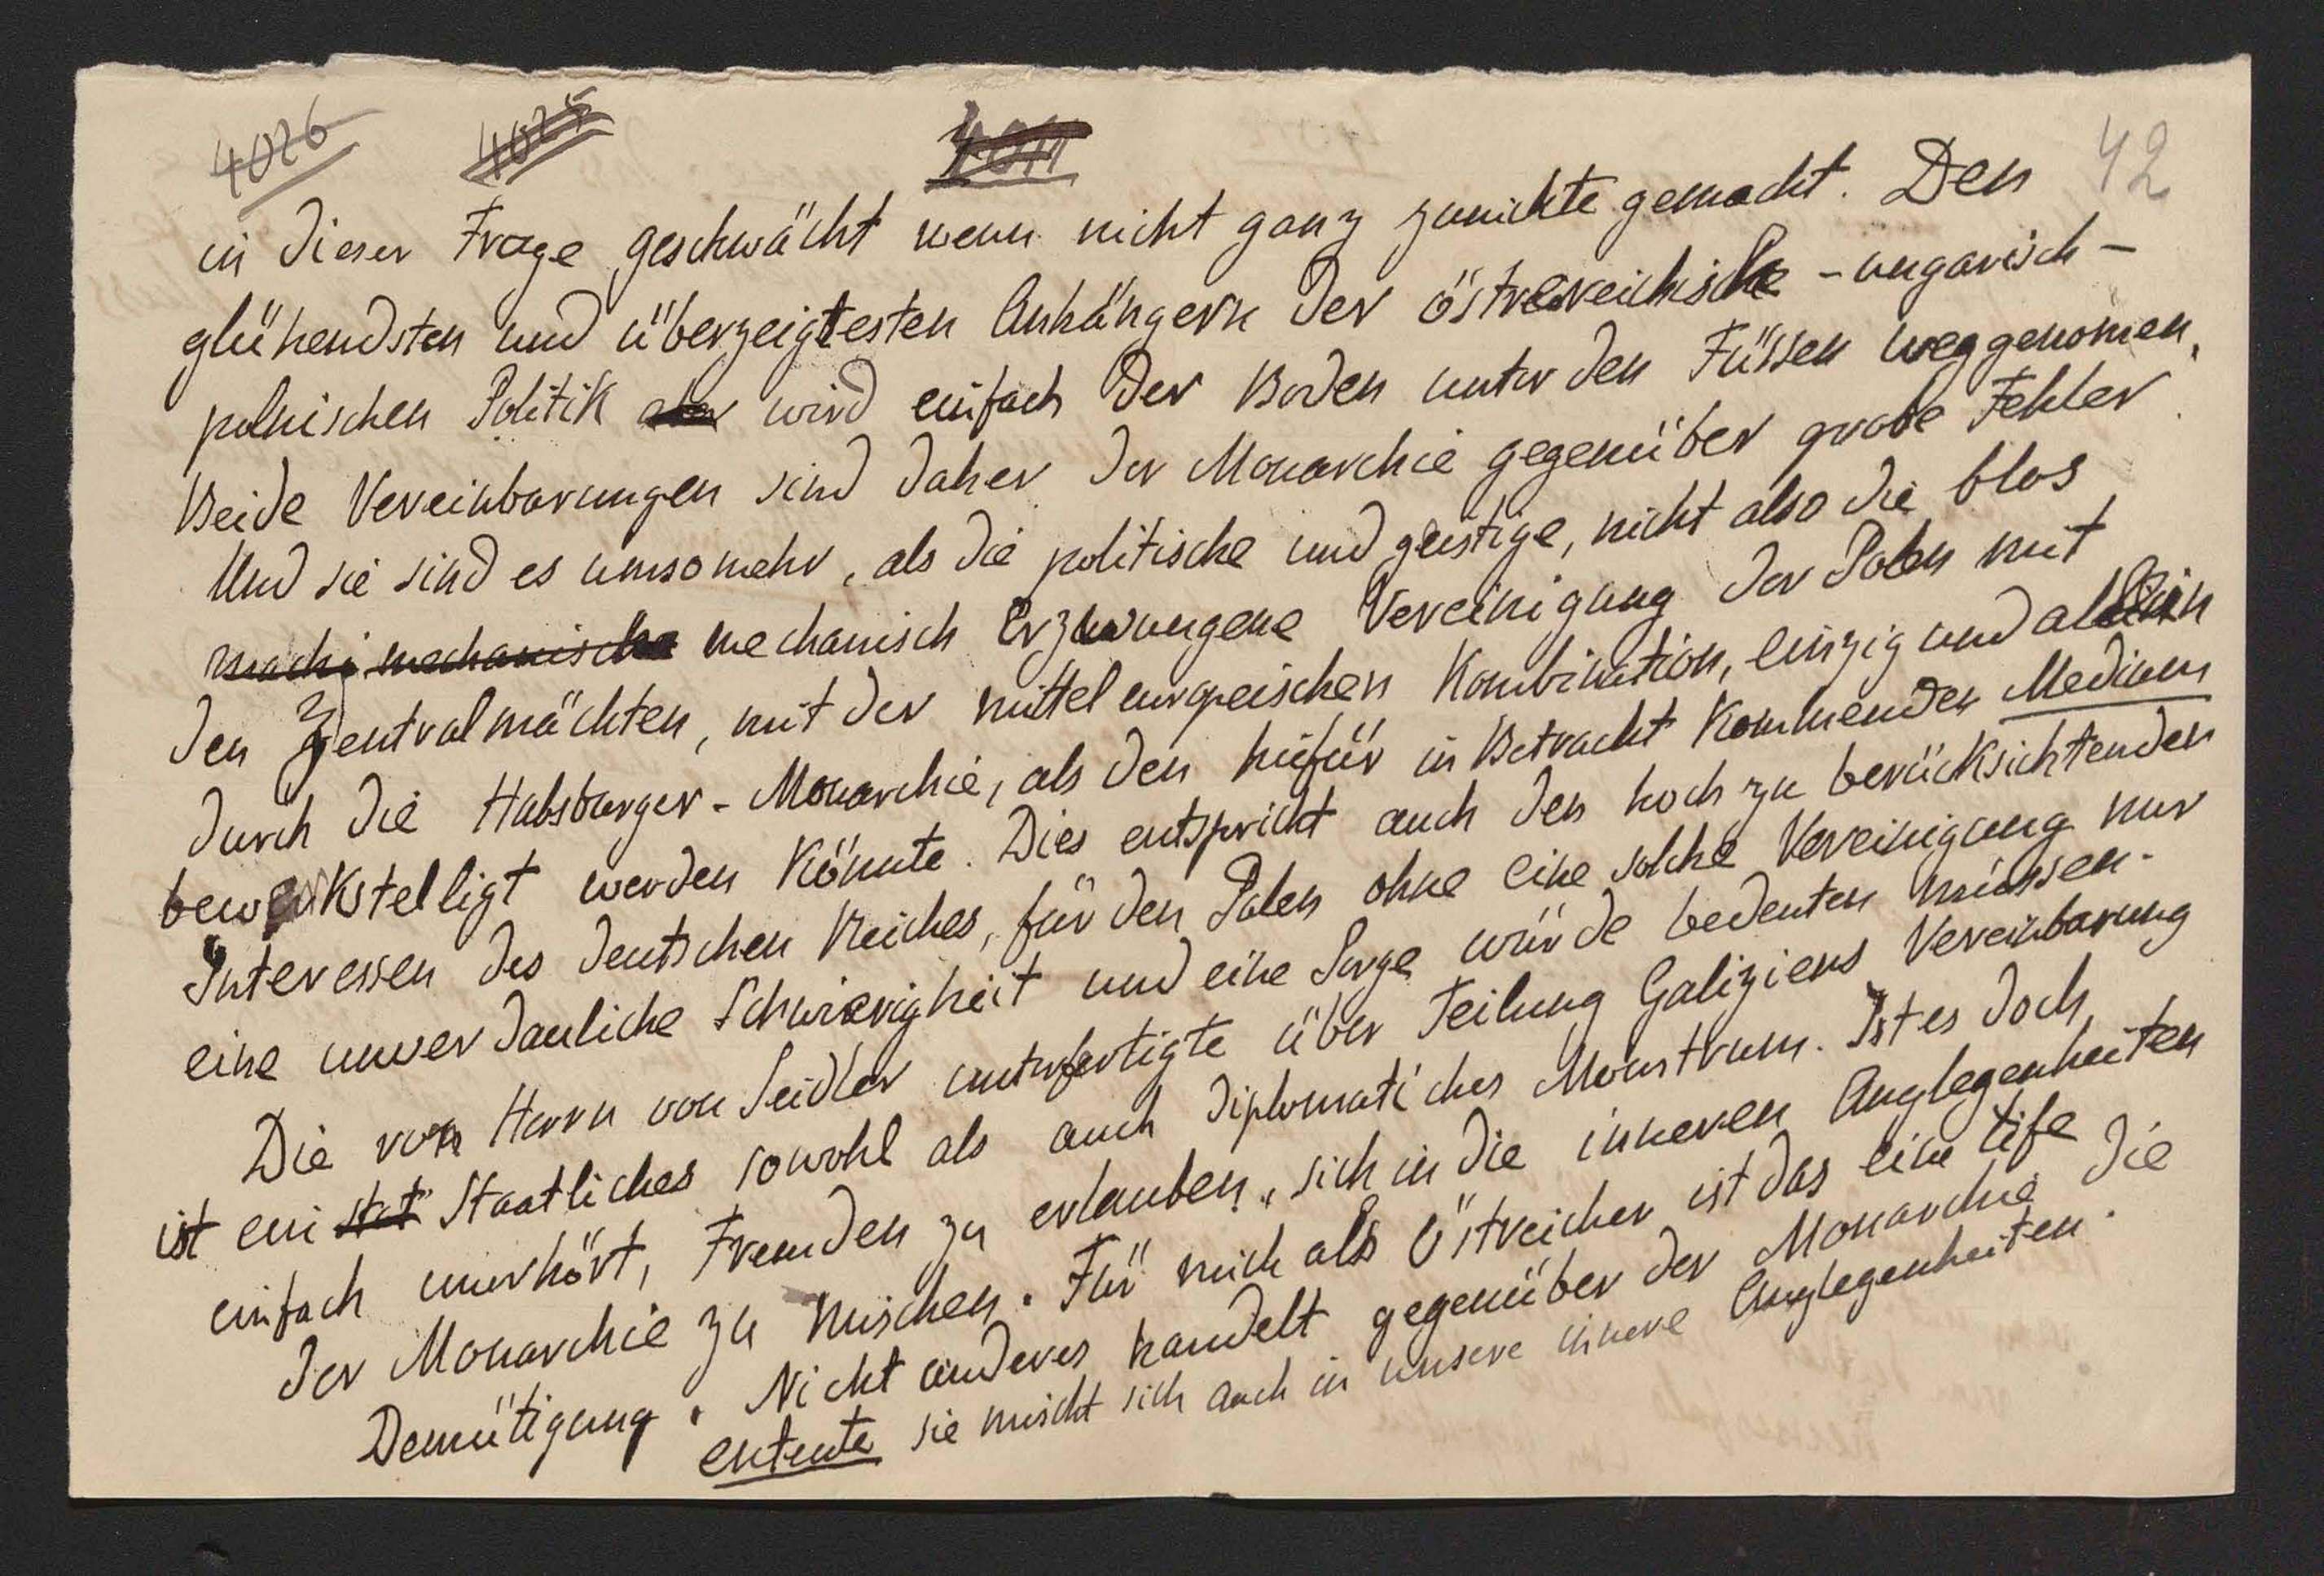 4026 4025 42
in dieser Frage geschwächt wenn nicht ganz zunichte gemacht. Den
glühendsten und überzeigtesten Anhängern der östrereichische - ungarisch -
polnischen Politik aber wird einfach der Boden unter den Füssen weggenomen.
Beide Vereinbarungen sind daher der Monarchie gegenüber grobe Fehler
Und sie sind es umsomehr, als die politische und geistige, nicht also die blos
machi mechanische mechanisch erzwungene Vereinigung der Polen mit
den Zentralmächten, mit der mitteleuropeischen Kombination, einzig und allein
durch die Habsburger - Monarchie, als den hiefür in Betracht kommenden Medium
bewerkstelligt werden könnte. Dies entspricht auch den hoch zu berücksichtenden
Interessen des deutschen Reiches, für den Polen ohne eine solche Vereinigung nur
eine unverdauliche Schwierigheit und eine Sorge würde bedeuten müssen.
Die von Herrn von Seidler unterfertigte über Teilung Galiziens Vereinbarung
ist ein stat Staatliches sowohl als auch diplomatiches Monstrum. Ist es doch
einfach unerhört, Fremden zu erlauben, sich in die inneren Anglegenheiten
der Monarchie zu mischen. Für mich als Östreicher ist das eine tife
Demütigung. Nicht anderes handelt gegenüber der Monarchie die
entente sie mischt sich auch in unsere innere Anglegenheiten.